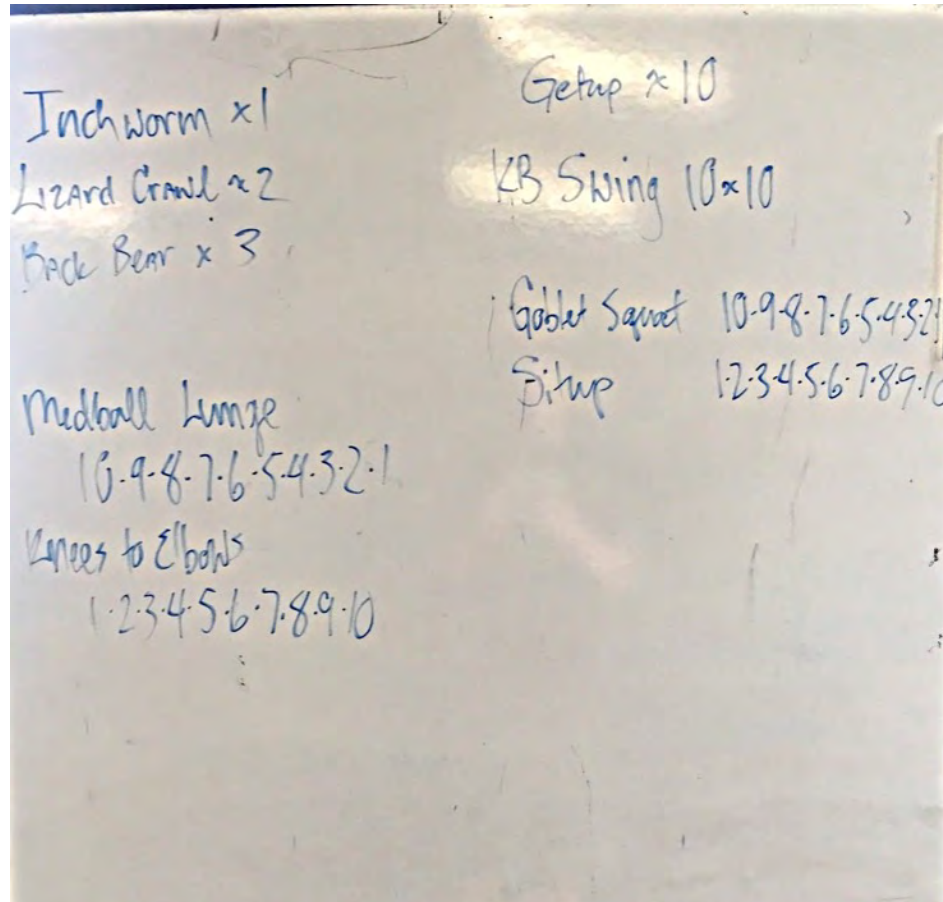 Inchworm x1
Lizard Crawl x2
Back Bear x 3
Medball Lunge
10-9-8-7-6-5-4-3-2-1
Knees to Elbows
1-2-3-4-5-6-7-8-9-10
Getup x 10
KB Swing 10x10
Goblet Squat 10-9-8-7-6-5-4-3-2-1
Situp 1-2-3-4-5-6-7-8-9-10